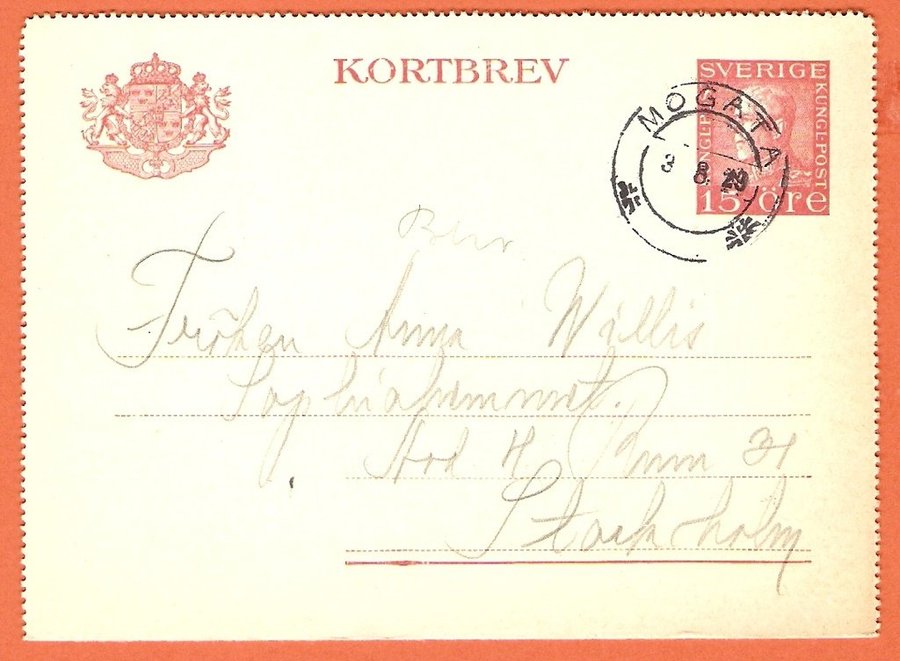 KORTBREV
SVERIGE
KUNGL·POST
15 öre
MOGATA
3 8. 29
Fröken Anna Willis
Sophiahemmet.
Avd H Rum 31
Stockholm